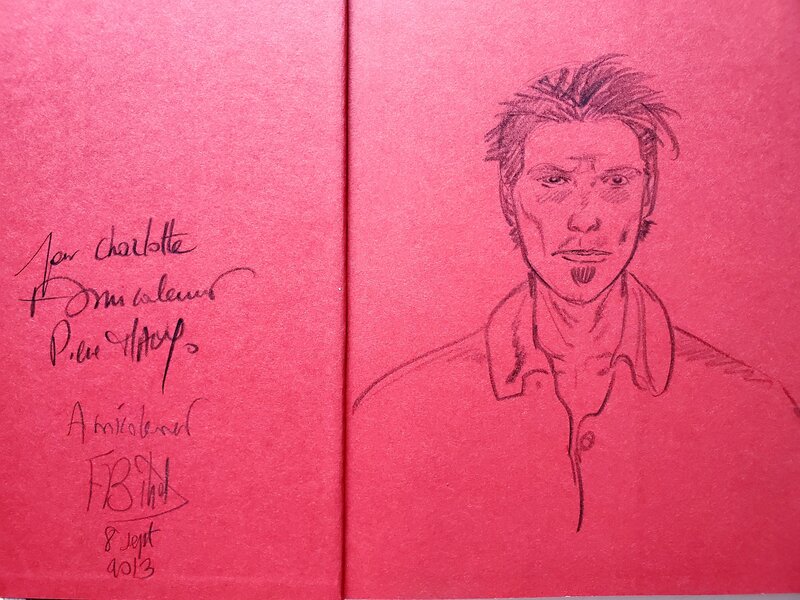 pour Charlotte
Amicalement
Pierre MAKYO
Amicalement
8 sept
2013